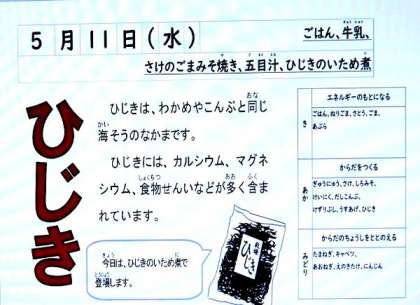 5月11日(水)
ごはん、牛乳、
さけのごまみそ焼き、五目汁、ひじきのいため煮
ひじき
ひじきは、わかめやこんぶと同じ
海そうのなかまです。
ひじきには、カルシウム、マグネ
シウム、食物せんいなどが多く含ま
れています。
今日は、ひじきのいため煮で
登場します。
ひじき
き
エネルギーのもとになる
ごはん、ねりごま、さとう、ごま、
あぶら
あか
からだをつくる
ぎゅうにゅう、さけ、しろみそ、
けいにく、だしこんぶ、
けずりぶし、うすあげ、ひじき
みどり
からだのちょうしをととのえる
たまねぎ、キャベツ、
あおねぎ、えのきたけ、にんじん